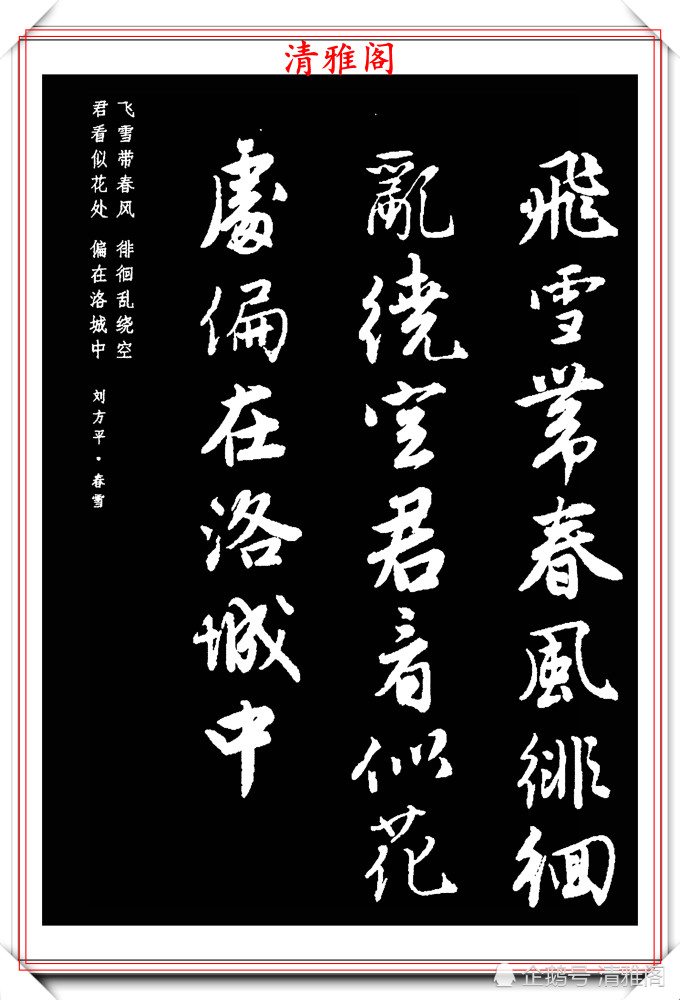 清雅阁
飛雪帶春風徘徊
亂繞空君看似花
處偏在洛城中
飞雪带春风 徘徊乱绕空
君看似花处 偏在洛城中 刘方平·春雪
企鹅号 清雅阁